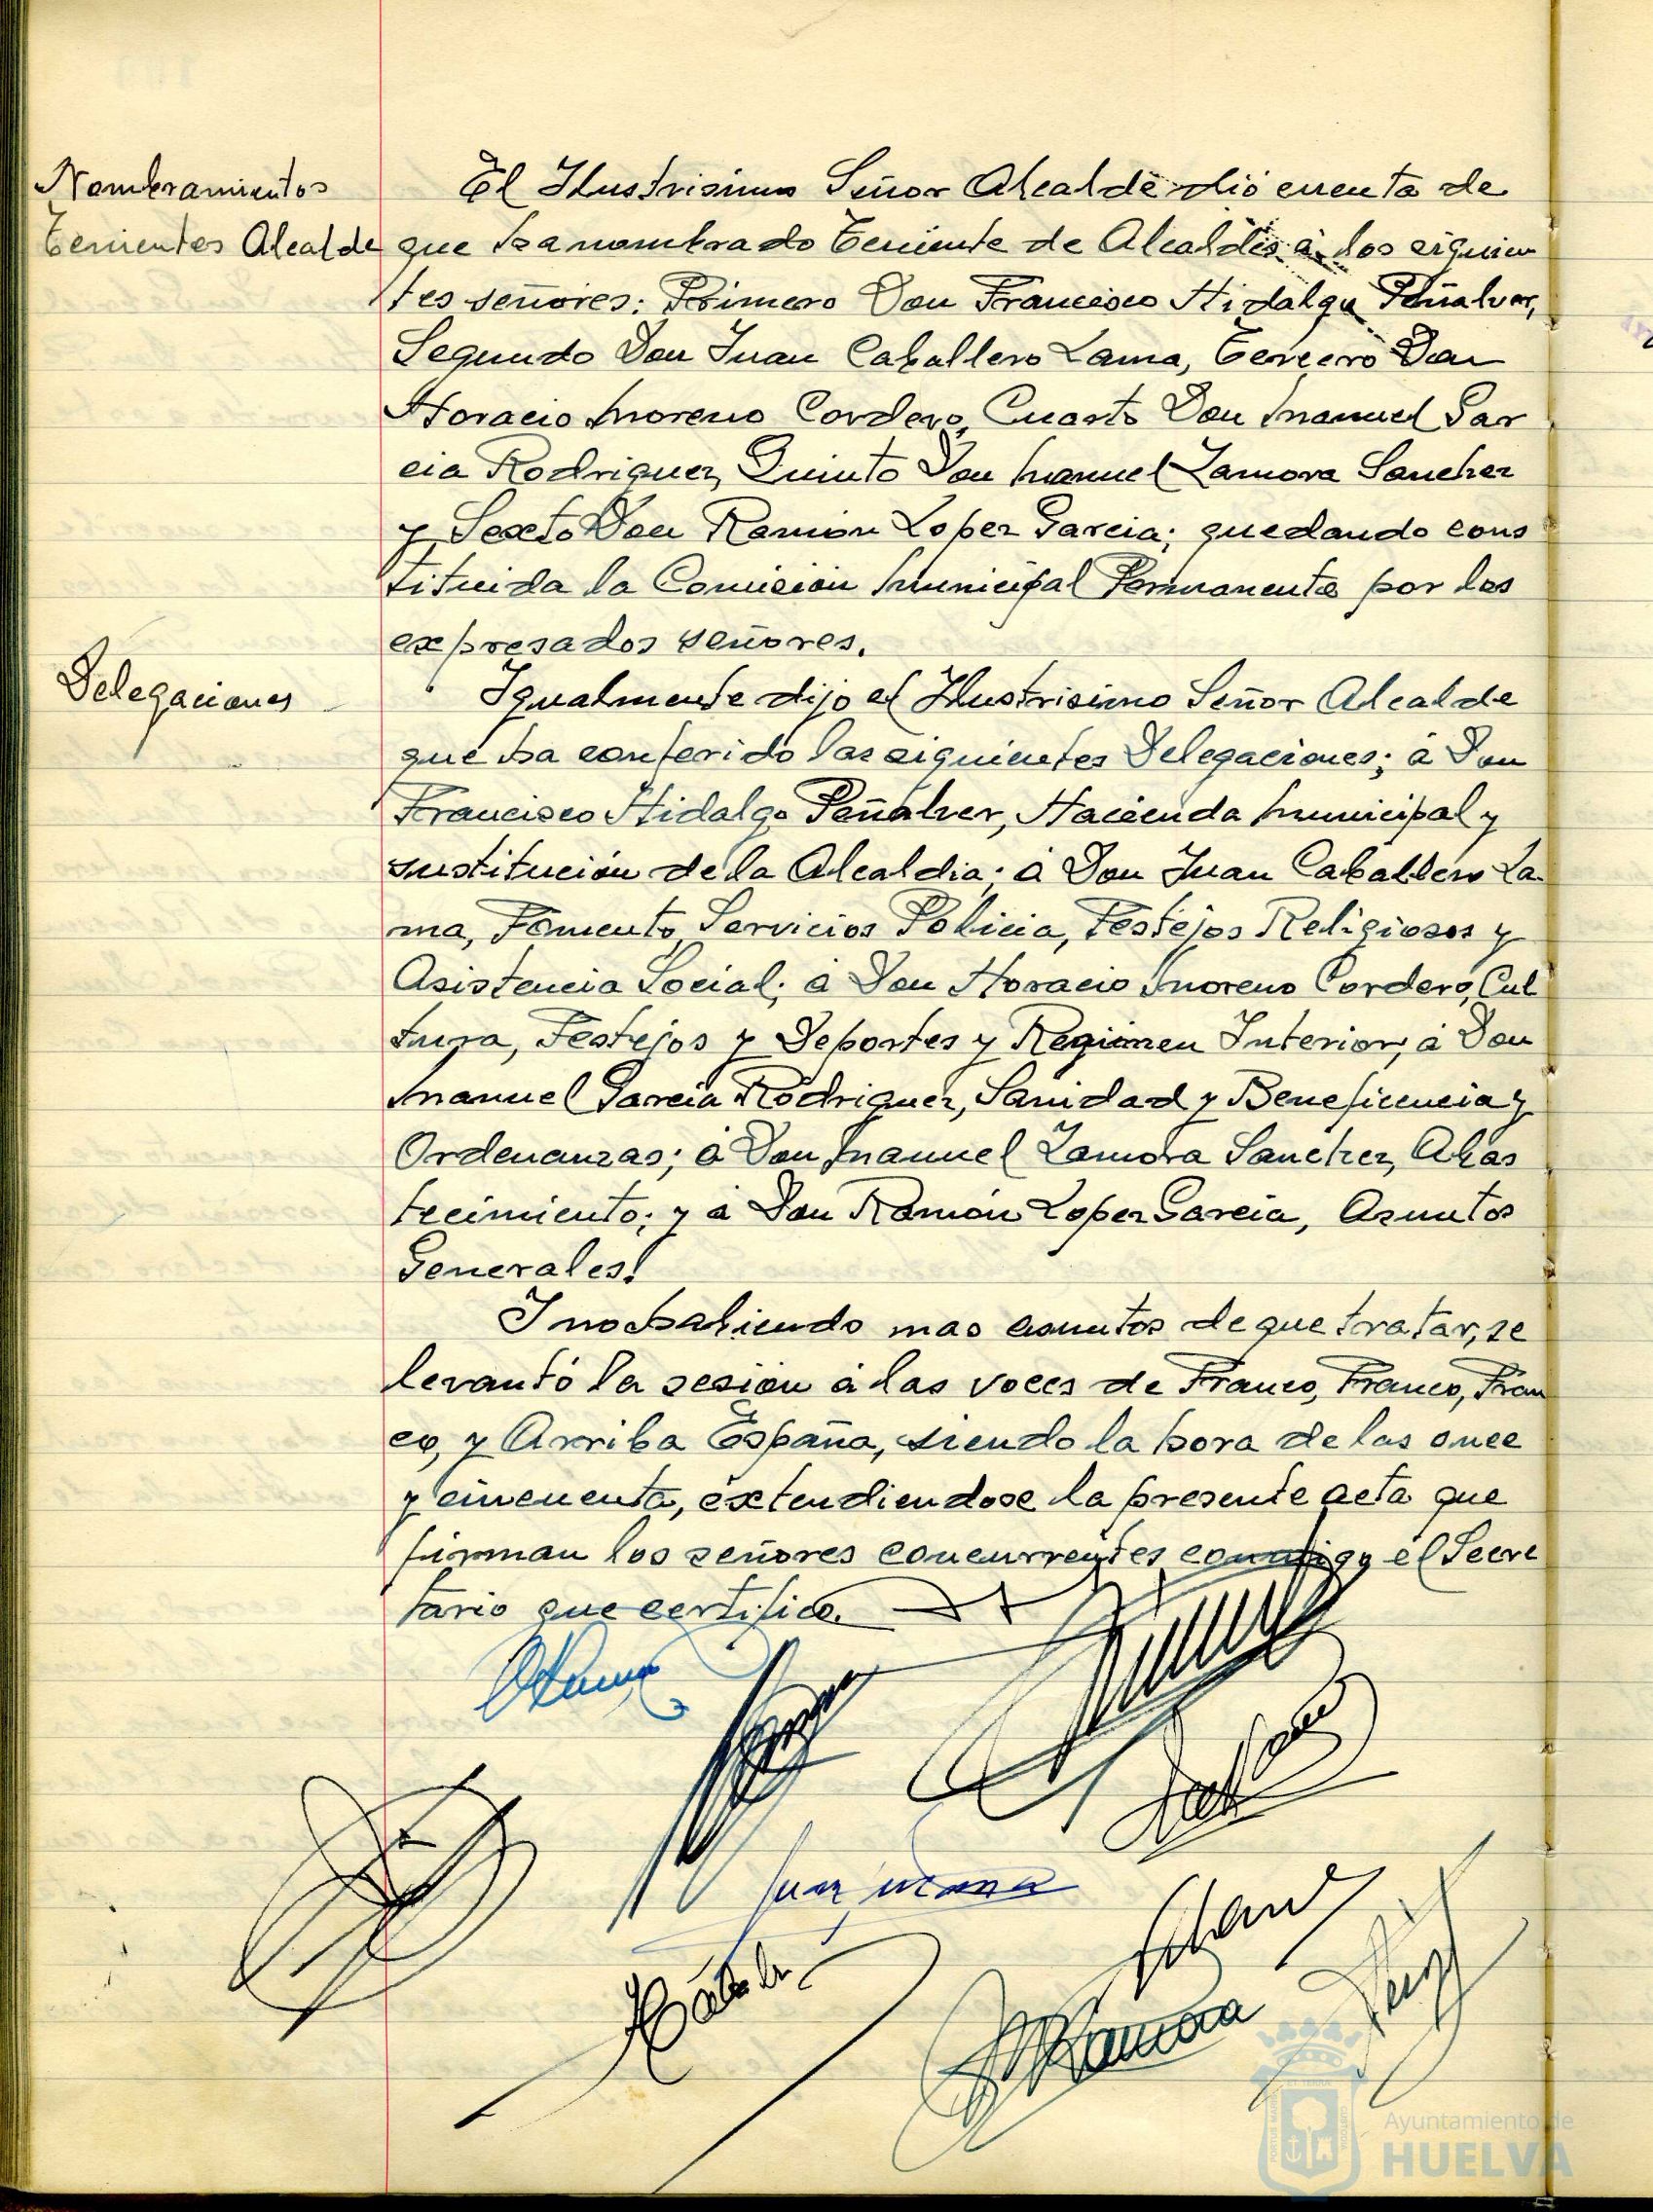 Nombramientos
Tenientes Alcalde
El Ilustrisimo Señor Alcalde dió cuenta de
que ha nombrado Teniente de Alcaldes á los siguien
tes señores: Primero Don Francisco Hidalgo Peñalver,
Segundo Don Juan Caballero Lama, Tercero Don
Horacio Moreno Cordero, Cuarto Don Manuel Gar
cia Rodriguez, Quinto Don Manuel Zamora Sanchez
y Sexto Don Ramón Lopez Garcia; quedando cons
tituida la Comisión Municipal Permanente por los
expresados señores.
Delegaciones
Igualmente dijo el Ilustrisimo Señor Alcalde
que ha conferido las siguientes Delegaciones; á Don
Francisco Hidalgo Peñalver, Hacienda Municipal y
sustitución de la Alcaldia; á Don Juan Caballero La
ma, Fomento, Servicios Policia, Festejos Religiosos y
Asistencia Social; á Don Horacio Moreno Cordero, Cul
tura, Festejos y Deportes y Regimen Interior; á Don
Manuel Garcia Rodriguez, Sanidad y Beneficencia y
Ordenanzas; á Don Manuel Zamora Sanchez, Abas
tecimiento; y á Don Ramón Lopez Garcia, Asuntos
Generales.
Y no habiendo mas asuntos de que tratar, se
levantó la sesión á las voces de Franco, Franco, Fran
co, y Arriba España, siendo la hora de las once
y cincuenta, extendiendose la presente acta que
firman los señores concurrentes conmigo el Secre
tario que certifico.
Juan
Zamora
Ayuntamiento de
HUELVA